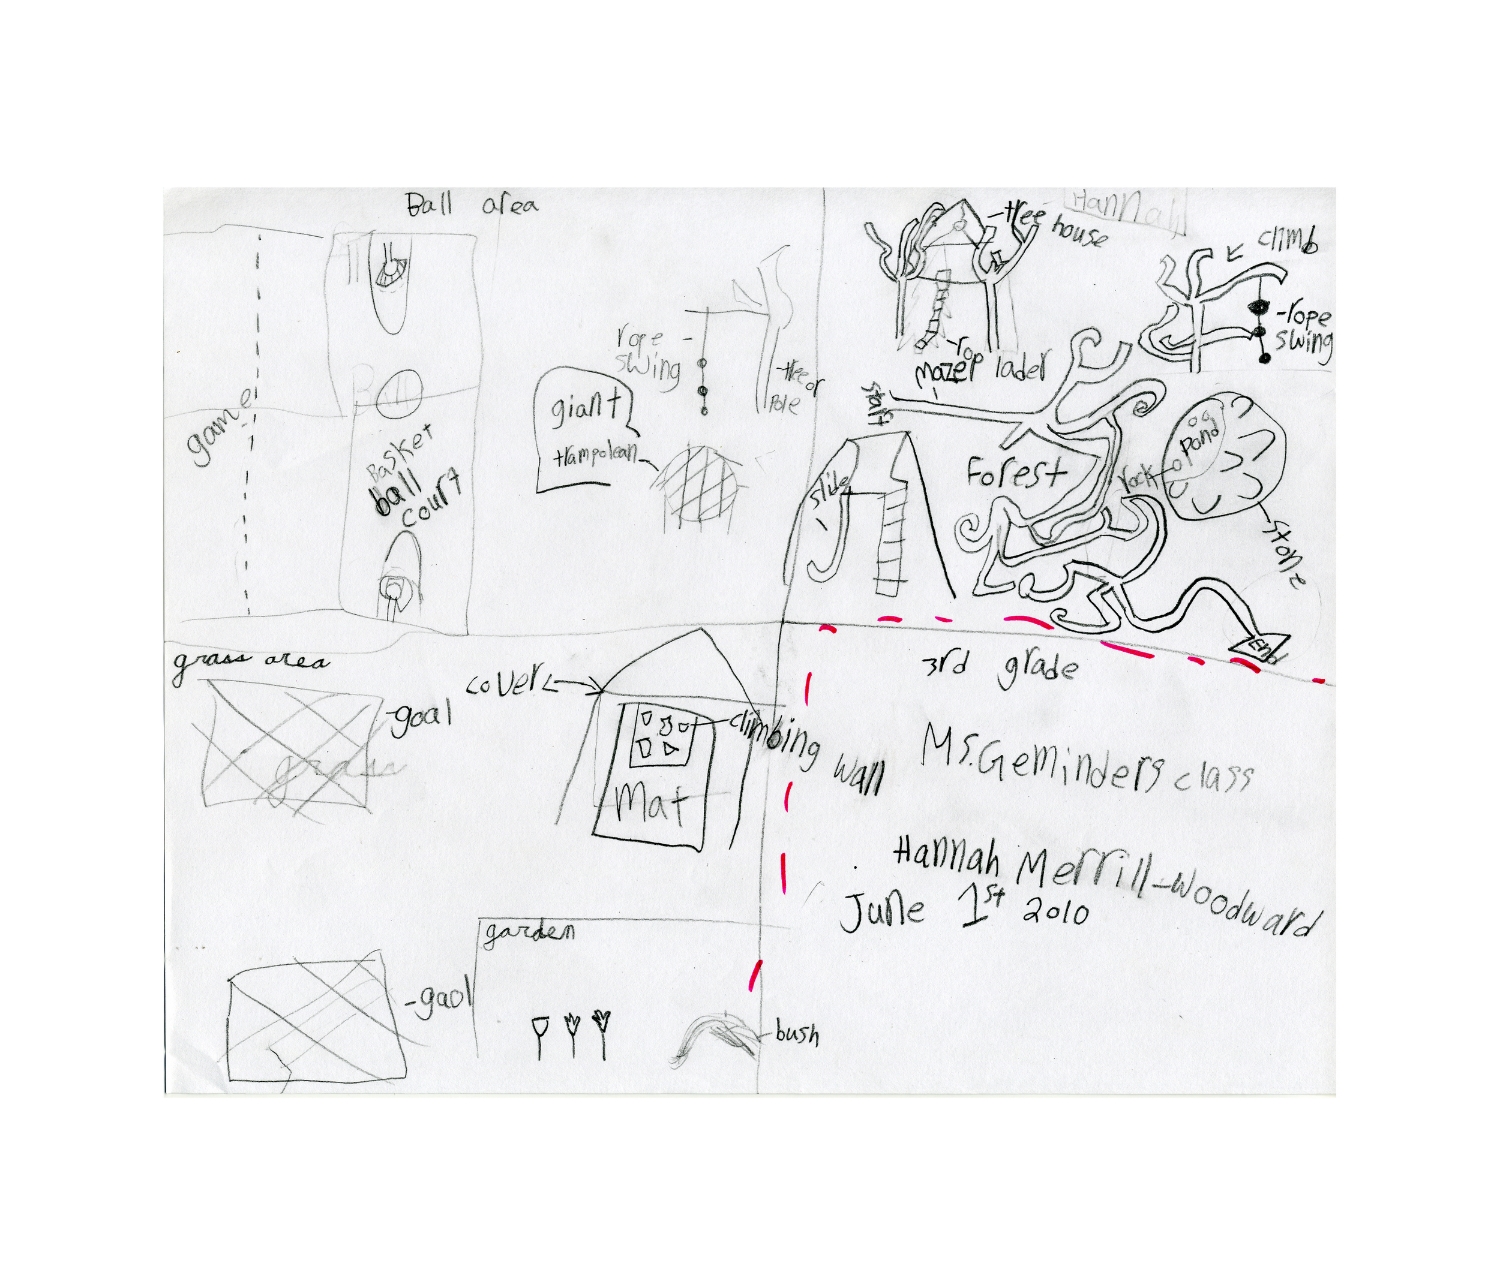 Ball area
game
Basket
ball
court
rope
swing
tree or
Pole
giant
trampolean
Hannah
tree
house
climb
rope
swing
rop
lader
mazer
start
slide
Forest
Pond
rock
stone
End
grass area
goal
grass
cover
climbing
wall
Mat
garden
gaol
bush
3rd grade
Ms.Geminders class
Hannah Merrill-Woodward
June 1st 2010